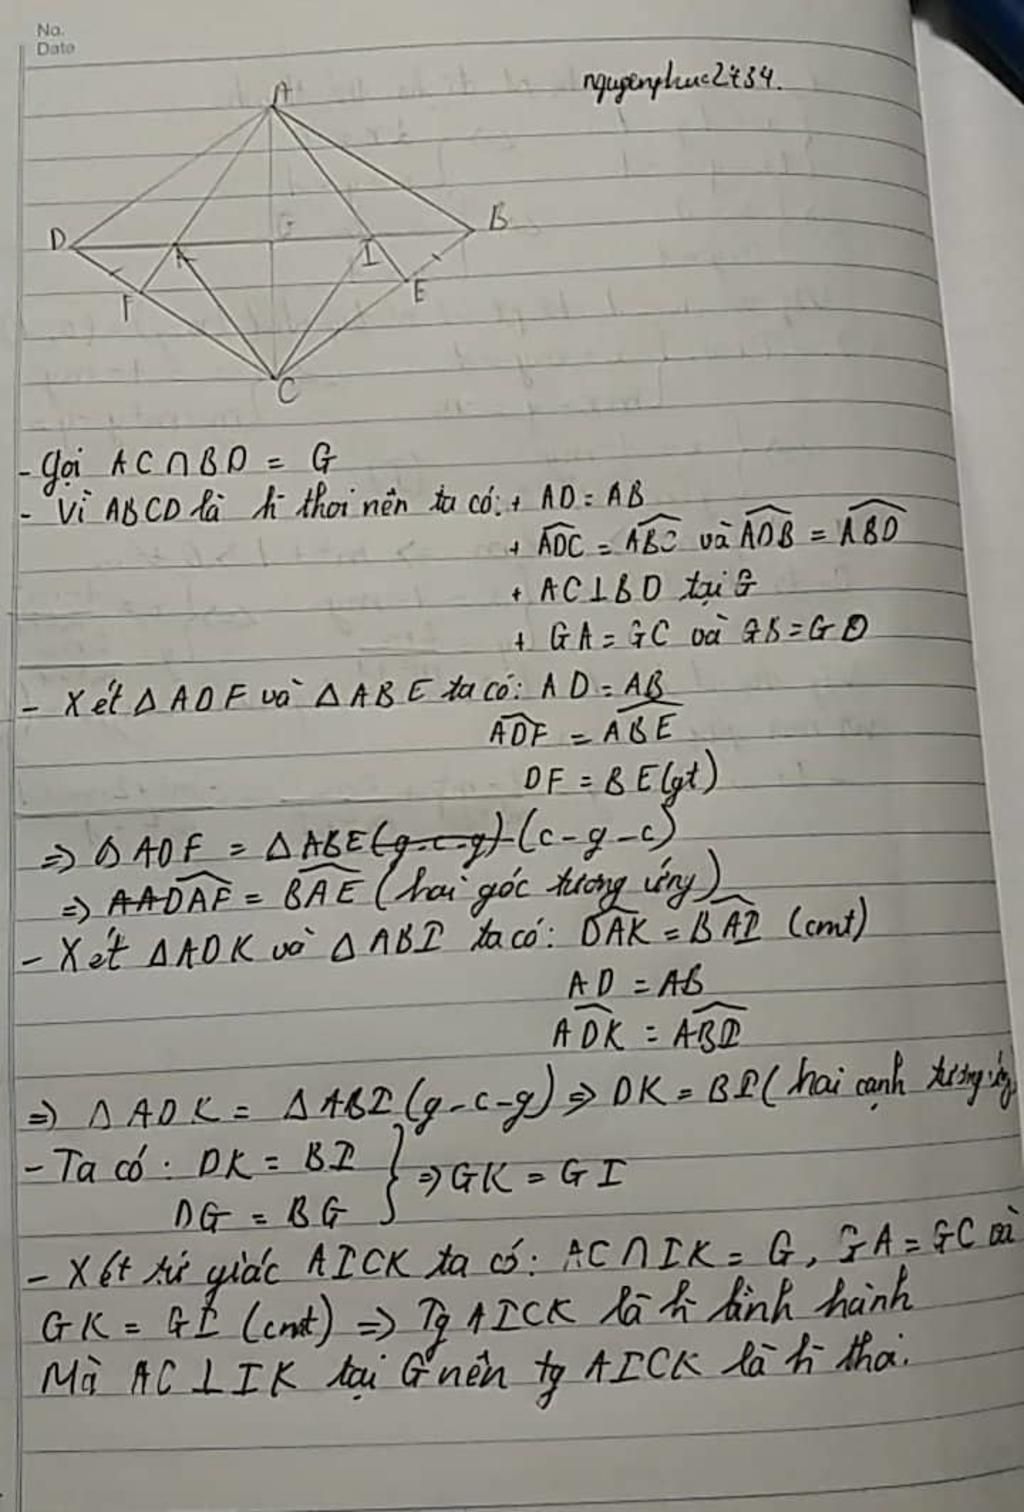 No.
Date
nguyenphuc2434.
A
D
G
B
K
I
F
E
C
- Gọi AC∩BD = G
- Vì ABCD là h thoi nên ta có: + AD = AB
+ ADC = ABC và ADB = ABD
+ AC⊥BD tại G
+ GA = GC và GB = GD
- Xét Δ ADF và Δ ABE ta có: AD = AB
ADF = ABE
DF = BE (gt)
=> Δ ADF = Δ ABE (g-c-g) (c-g-c)
=> AADAF = BAE (hai góc tương ứng)
- Xét Δ ADK và Δ ABI ta có: DAK = BAI (cmt)
AD = AB
ADK = ABI
=> Δ ADK = Δ ABI (g-c-g) => DK = BI (hai cạnh tương ứng)
- Ta có: DK = BI } => GK = GI
DG = BG
- Xét tứ giác AICK ta có: AC∩IK = G, GA = GC và
GK = GI (cmt) => Tg AICK là h bình hành
Mà AC⊥IK tại G nên tg AICK là h thoi.